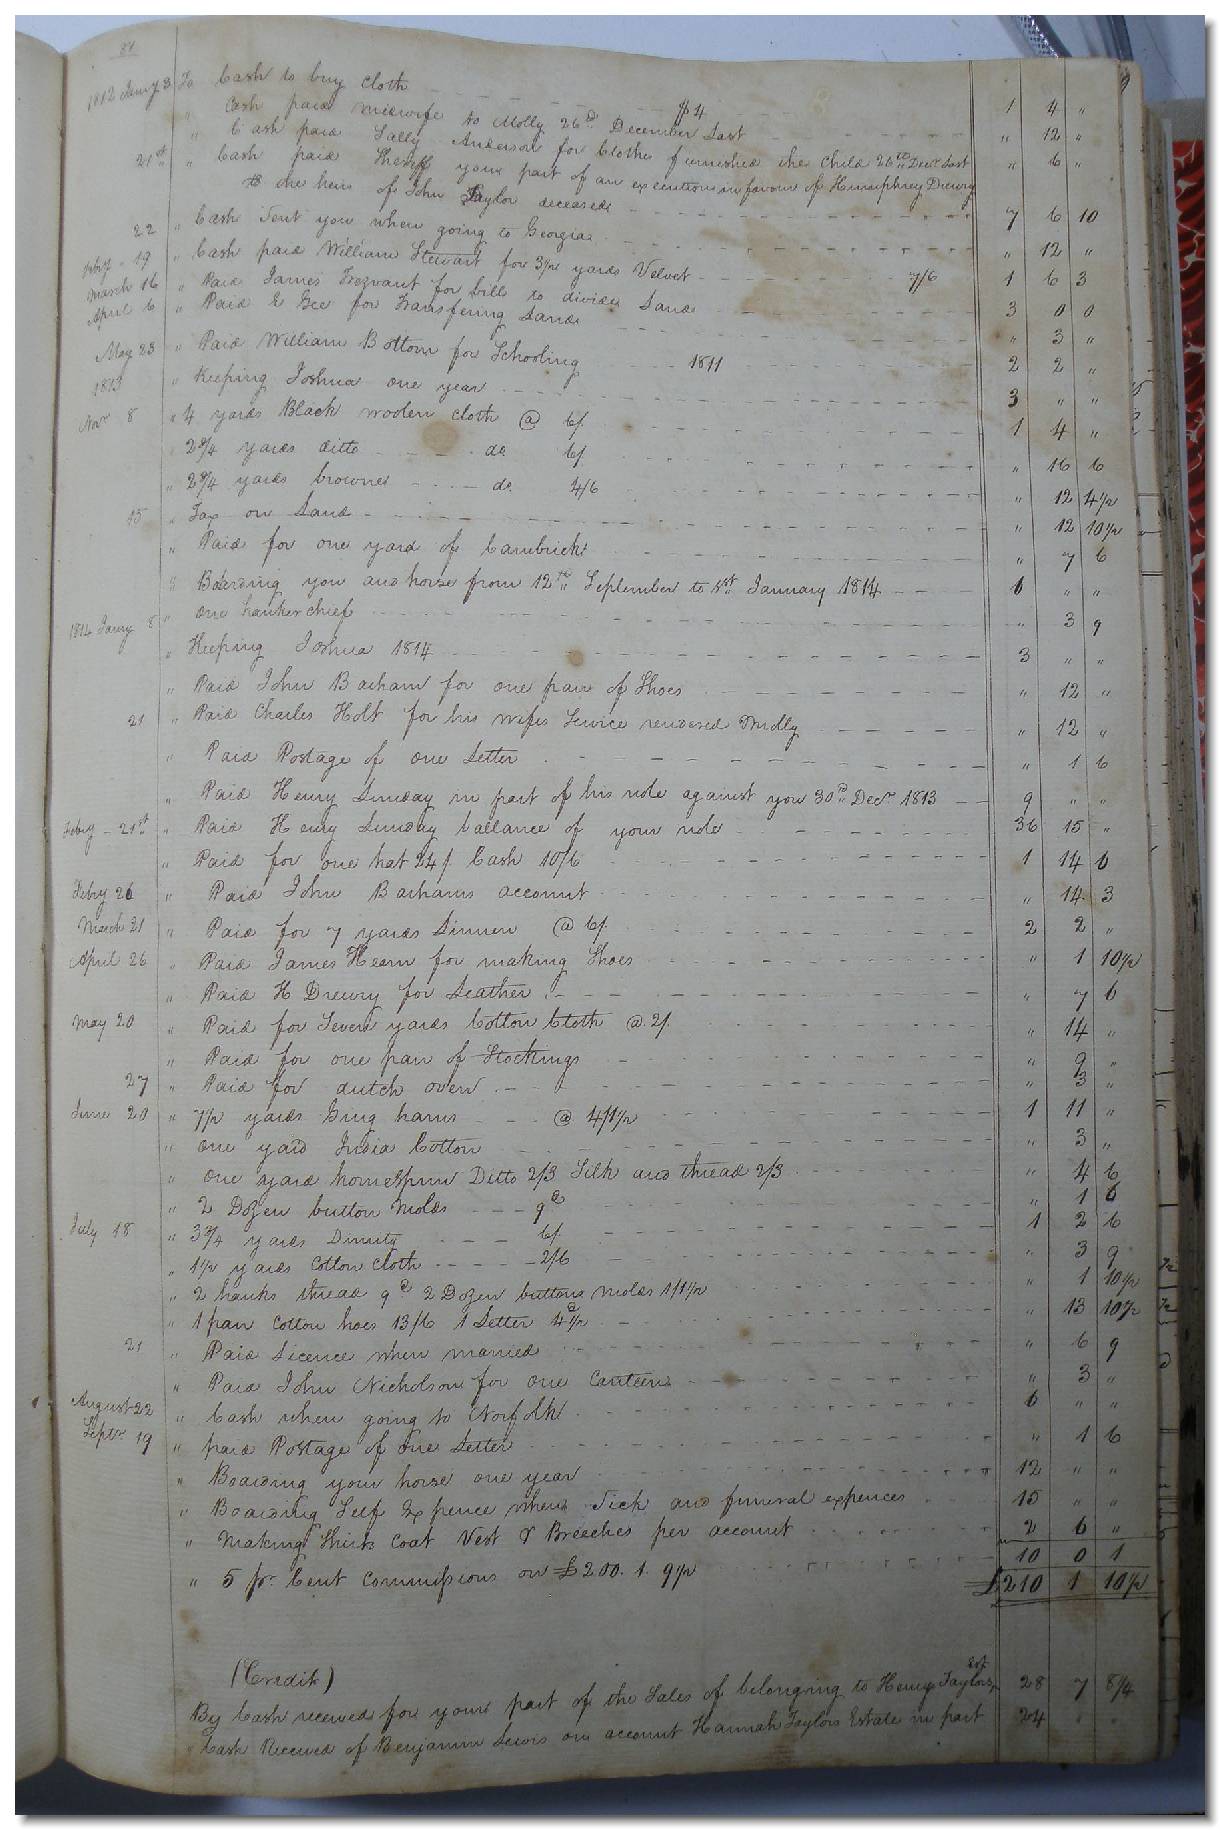 84
1812 Jany 3 To Cash to buy cloth $4 1 4 "
" Cash paid midwife to Molly 26th December Last " 12 "
" Cash paid Sally Anderson for Clothe furnished the Child 26th Decr Last " 6 "
21st " Cash paid Sheriff your part of an execution in favour of Humphrey Drewry
the heirs of John Taylor deceased 7 6 10
22 " Cash Sent you when going to Georgia " 12 "
Feby 19 " Cash paid William Stewart for 3 1/2 yards Velvet 7/6 1 6 3
March 16 " Paid James Trezvant for bill to divide Land 3 0 0
April 6 " Paid E Gee for Transfering Land " 3 "
May 23 " Paid William Bottom for Schooling 1811 2 2 "
1813 " Keeping Joshua one year 3 " "
Nov 8 " 4 yards Black woolen cloth @ 6/ 1 4 "
2 3/4 yards ditto do 6/ " 16 6
" 2 3/4 yards brown do 4/6 " 12 4 1/2
15 " Tax on Land " 12 10 1/2
" Paid for one yard of Cambrick " 7 6
" Boarding you and horse from 12th September to 8th January 1814 6 " "
1814 Jany 8 " one hankerchief " 3 9
" Keeping Joshua 1814 3 " "
" Paid John Barham for one pair of Shoes " 12 "
21 " Paid Charles Holt for his wifes Service rendered Molly " 12 "
" Paid Postage of one Letter " 1 6
" Paid Henry Lunday in part of his note against you 30th Decr 1813 9 " "
Feby 21st " Paid Henry Lunday ballance of your note 36 15 "
" Paid for one hat 24/ Cash 10/6 1 14 6
Feby 26 " Paid John Barhams account " 14 3
March 21 " Paid for 7 yards Linnen @ 6/ 2 2 "
April 26 " Paid James Hearn for making Shoes " 1 10 1/2
" Paid H Drewry for Leather " 7 6
May 20 " Paid for Seven yards Cotton Cloth @ 2/ " 14 "
" Paid for one pair of Stockings " 9 "
27 " Paid for dutch oven " 3 "
June 20 " 7 1/2 yards Ging hams @ 4/1 1/2 1 11 "
" one yard India Cotton " 3 "
" one yard homespun Ditto 2/3 Silk and thread 2/3 " 4 6
" 2 Dozen button molds 9d " 1 6
July 18 " 3 3/4 yards Dimity 6/ 1 2 6
" 1 1/2 yards Cotton Cloth 2/6 " 3 9
" 2 hanks thread 9d 2 Dozen button molds 1/1 1/2 " 1 10 1/2
" 1 pair Cotton hoes 13/6 1 Letter 4 1/2d " 13 10 1/2
21 " Paid Licence when married " 6 9
" Paid John Nicholson for one Canteen " 3 "
August 22 " Cash when going to Norfolk 6 " "
Septr 19 " paid Postage of one Letter " 1 6
" Boarding your horse one year 12 " "
" Boarding Self Expence when Sick and funeral expences 15 " "
" Making Shirts Coat Vest & Breeches per account 2 6 "
" 5 pr Cent Commissions on £200. 1. 9 1/2 10 0 1
£210 1 10 1/2
(Credit)
By Cash received for your part of the Sales of belonging to Henry Taylors est 28 7 8 1/4
Cash Received of Benjamin Lewis on account Hannah Taylors Estate in part 24 " "